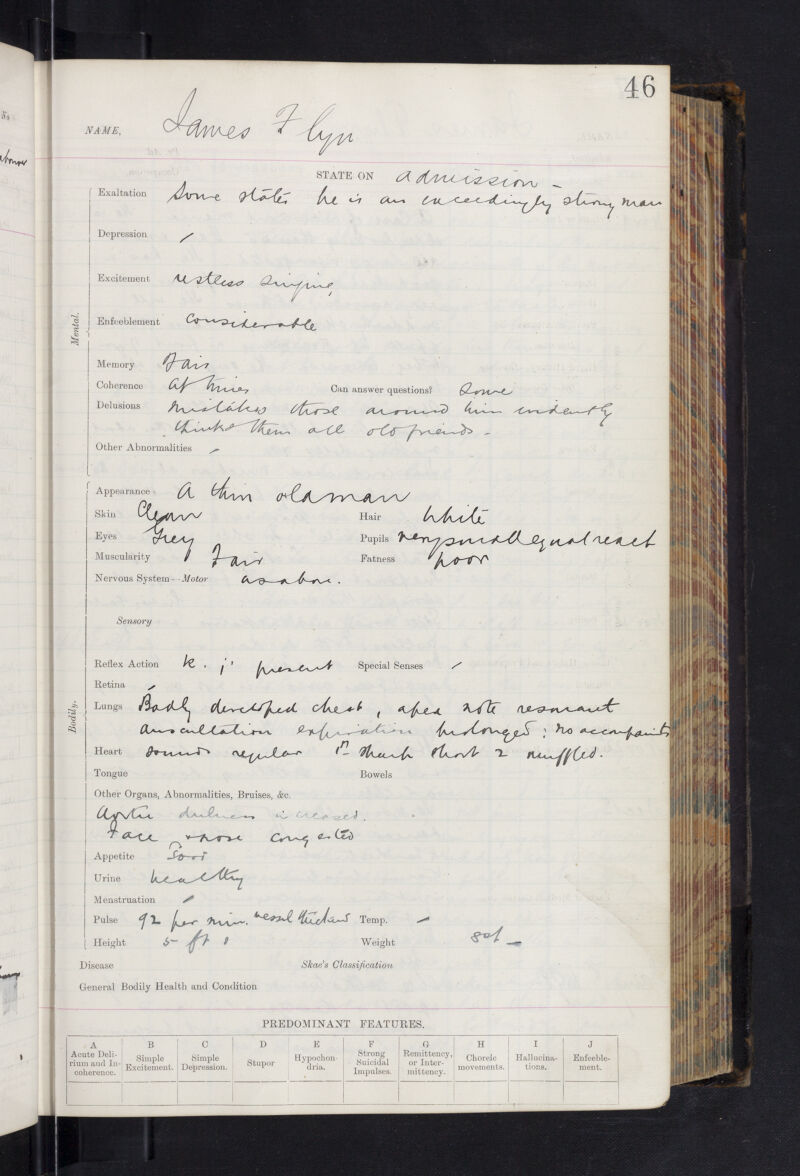 46
NAME, James Flyn
STATE ON admission -
Exaltation Some states he is an exceedingly strong man
Depression /
Excitement restless singing,
Enfeeblement Considerable
Mental.
Memory Fair
Coherence At times Can answer questions? Some
Delusions mistakes those around him evidently
thinks them all old friends -
Other Abnormalities /
Appearance A thin old man
Skin Clean Hair White
Eyes Grey Pupils very small equal react
Muscularity Fair Fatness poor
Nervous System—Motor as above.
Sensory
Reflex Action K. j. present Special Senses /
Retina /
Bodily.
Lungs Badly developed chest, apex note resonant
auscultation expiration prolonged: No accompaints
Heart sounds regular 1st sharp short 2 muffled.
Tongue Bowels
Other Organs, Abnormalities, Bruises, &c.
Aortic dulness increased.
Face & nose congested
Appetite Good
Urine healthy
Menstruation /
Pulse 92 per min. vessel thickend Temp. /
Height 5 ft 1 Weight 8 st -
Disease Skae's Classification
General Bodily Health and Condition
PREDOMINANT FEATURES.
A B C D E F G H I J
Acute Deli- Simple Simple Stupor Hypochon- Strong Remittency, Choreic Hallucina- Enfeeble-
rium and In- Excitement. Depression. dria. Suicidal or Inter- movements. tions. ment.
coherence. Impulses. mittency.